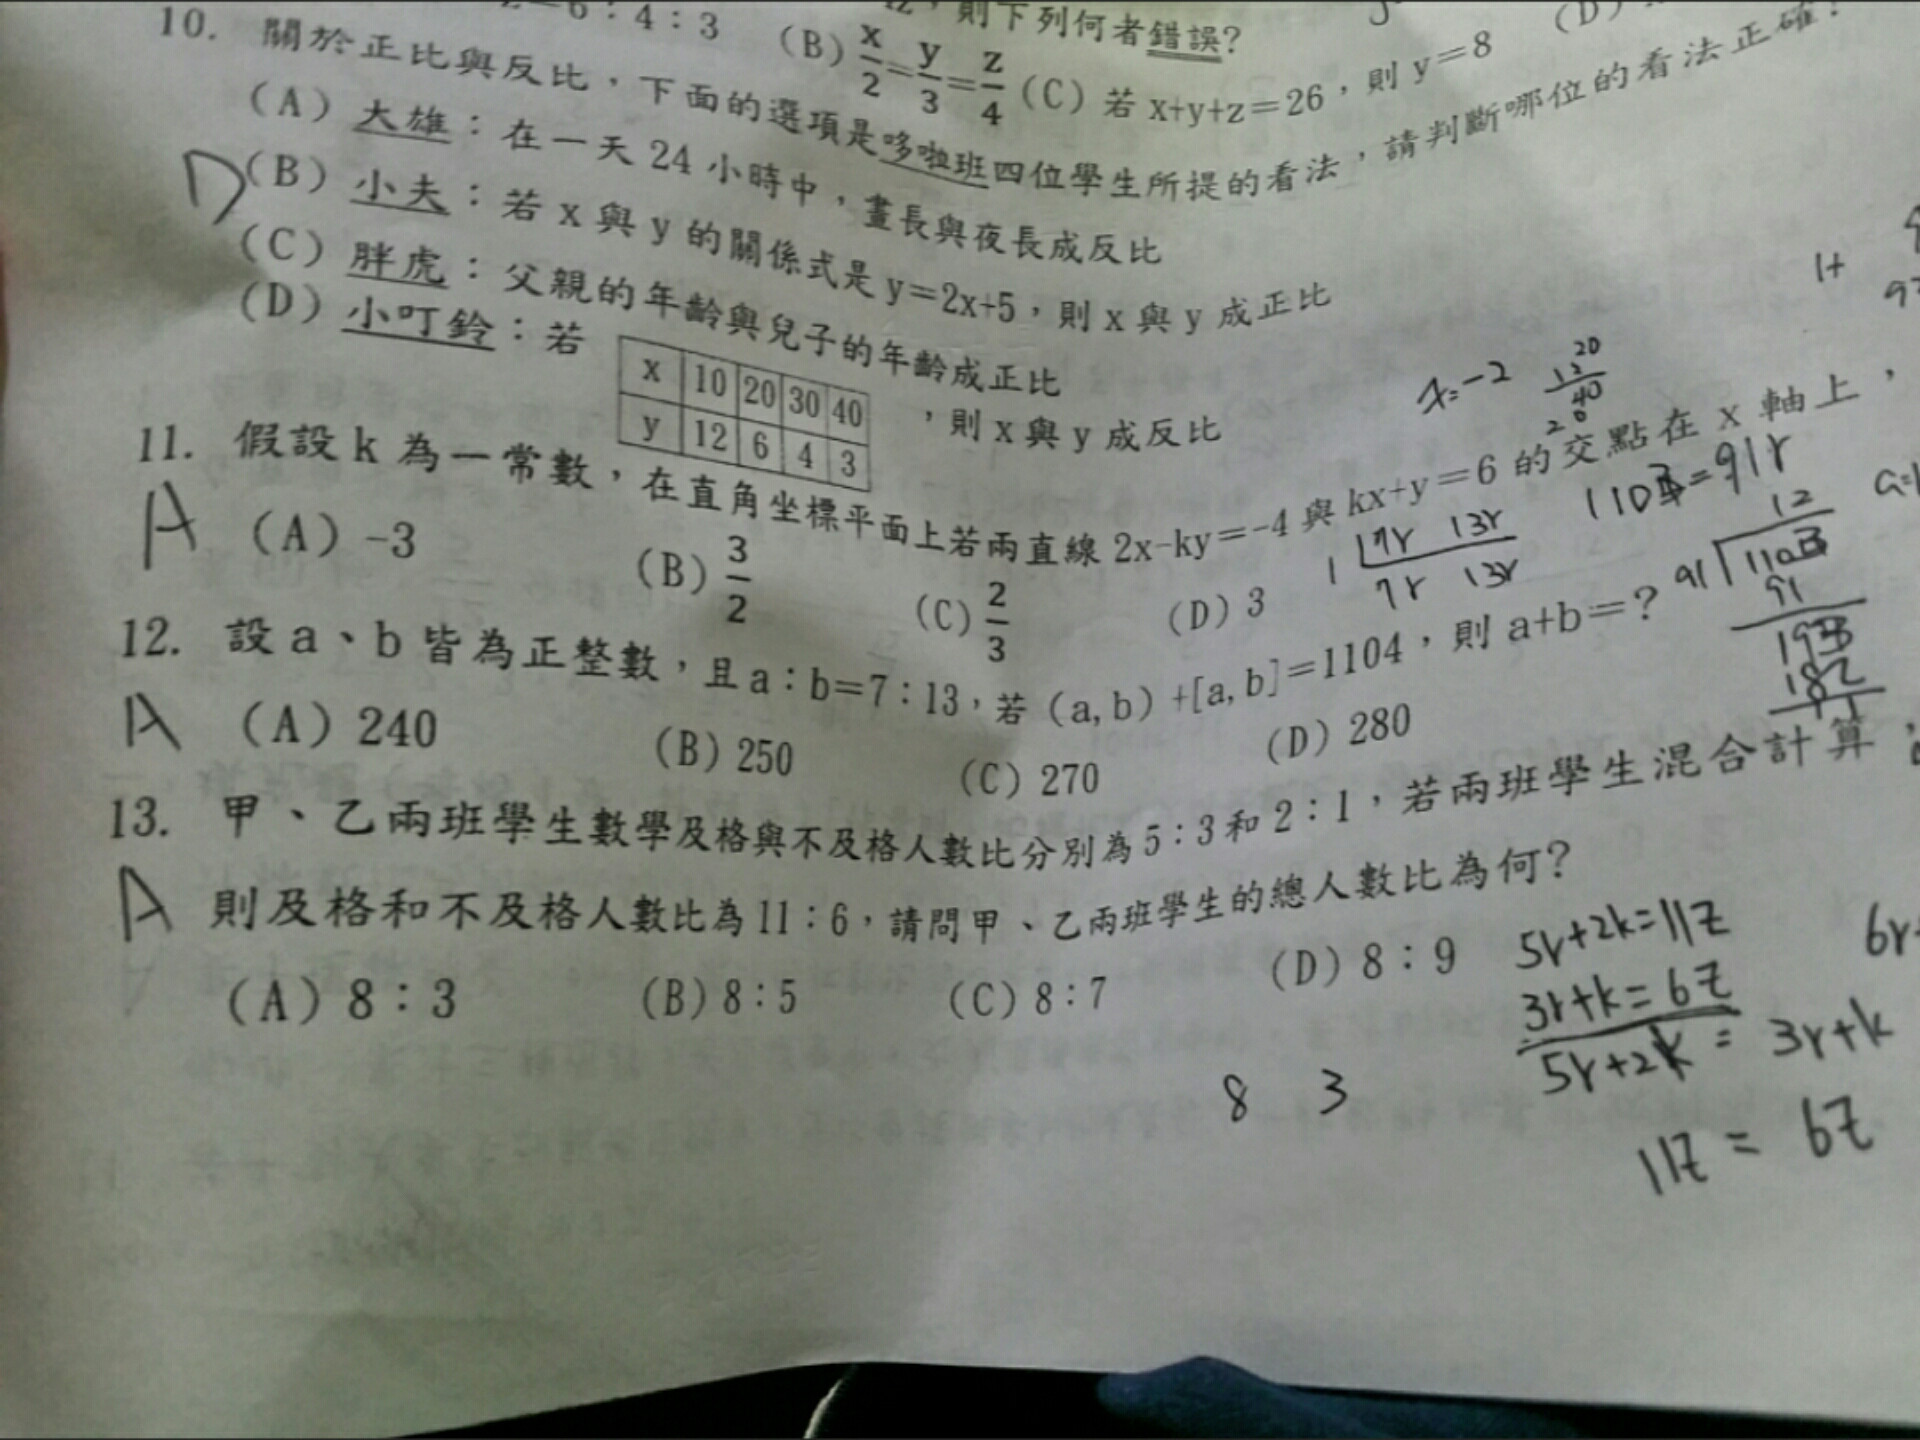 =6:4:3 (B) x/2=y/3=z/4 (C) 若 x+y+z=26，則 y=8 (D)
，則下列何者錯誤?
10. 關於正比與反比，下面的選項是哆啦班四位學生所提的看法，請判斷哪位的看法正確?
(A) 大雄：在一天 24 小時中，晝長與夜長成反比
D (B) 小夫：若 x 與 y 的關係式是 y=2x+5，則 x 與 y 成正比
(C) 胖虎：父親的年齡與兒子的年齡成正比
(D) 小叮鈴：若
x 10 20 30 40
y 12 6 4 3
，則 x 與 y 成反比
11. 假設 k 為一常數，在直角坐標平面上若兩直線 2x-ky=-4 與 kx+y=6 的交點在 x 軸上，
A (A) -3 (B) 3/2 (C) 2/3 (D) 3
12. 設 a、b 皆為正整數，且 a：b=7：13，若 (a,b)+[a,b]=1104，則 a+b=?
A (A) 240 (B) 250 (C) 270 (D) 280
13. 甲、乙兩班學生數學及格與不及格人數比分別為 5：3 和 2：1，若兩班學生混合計算，
A 則及格和不及格人數比為 11：6，請問甲、乙兩班學生的總人數比為何?
(A) 8：3 (B) 8：5 (C) 8：7 (D) 8：9
x=-2
1+
7r 13r
7r 13r
91
182
5r+2k=11z
3r+k=6z
5r+2k = 3r+k
11z = 6z
8 3